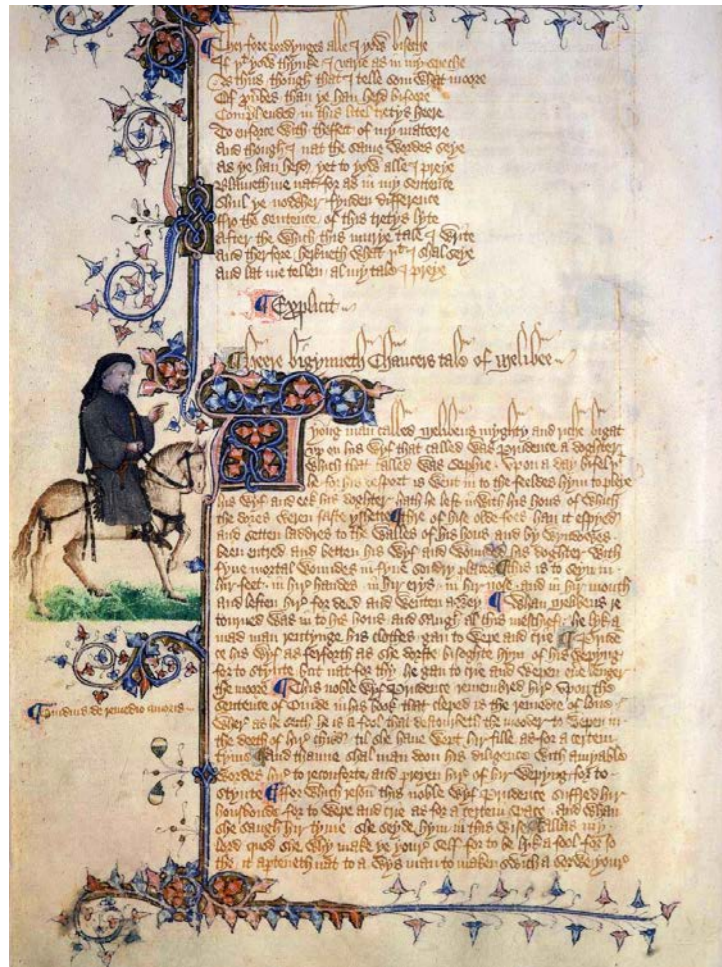 Therfore lordynges alle I yow biseche
If þt yow thynke I varie as in my speche
As thus though that I telle som what moore
Of prouerbes than ye han herd bifoore
Comprehended in this litel tretys heere
To enforce with theffect of my mateere
And though I nat the same wordes seye
As ye han herd yet to yow alle I preye
Blameth me nat for as in my sentence
Shul ye nowher fynden difference
Fro the sentence of this tretys lyte
After the which this murye tale I write
And therfore herkneth what þt I shal seye
And lat me tellen al my tale I preye
¶ Explicit
¶ Heere bigynneth Chaucers tale of Melibee
A yong man called Melibeus myghty and riche bigat
vp on his wyf that called was Prudence a doghter
which that called was Sophie. Vpon a day bifel þt
he for his desport is went in to the feeldes hym to pleye
his wyf and eek his doghter hath he left in with his hous of which
the dores weren faste yshette ¶ Thre of hise olde foes han it espyed
and setten laddres to the walles of his hous and by wyndowes
been entred and betten his wyf and wounded his doghter with
fyue mortal woundes in fyue sondry places ¶ This is to seyn in
hir feet. in hir handes. in hir erys. in hir nose. and in hir mouth
and leften hir for deed and wenten awey ¶ Whan Melibeus re
tourned was in to his hous and saugh al this meschief. he lyk a
mad man rentynge his clothes gan to wepe and crie ¶ Pruden
ce his wyf as ferforth as she dorste bisoghte hym of his wepyng
for to stynte but nat for thy he gan to crie and wepen euere lenger
the moore ¶ This noble wyf Prudence remembred hir vpon the
sentence of Ouide in his book that cleped is the remedie of loue
wher as he seith he is a fool that destourbeth the mooder to wepen in
the deeth of hir child. til she haue wept hir fille as for a certein
tyme ¶ And thanne shal man doon his diligence with amyable
wordes hir to reconforte and preyen hir of hir wepyng for to
stynte ¶ For which reson this noble wyf Prudence suffred hir
housbonde for to wepe and crie as for a certein space. and whan
she saugh hir tyme she seyde hym in this wise ¶ Allas my
lord quod she. why make ye your self for to be lyk a fool for so
the it aperteneth nat to a wys man to maken swich a sorwe your
¶ Ouidius de remedio amoris